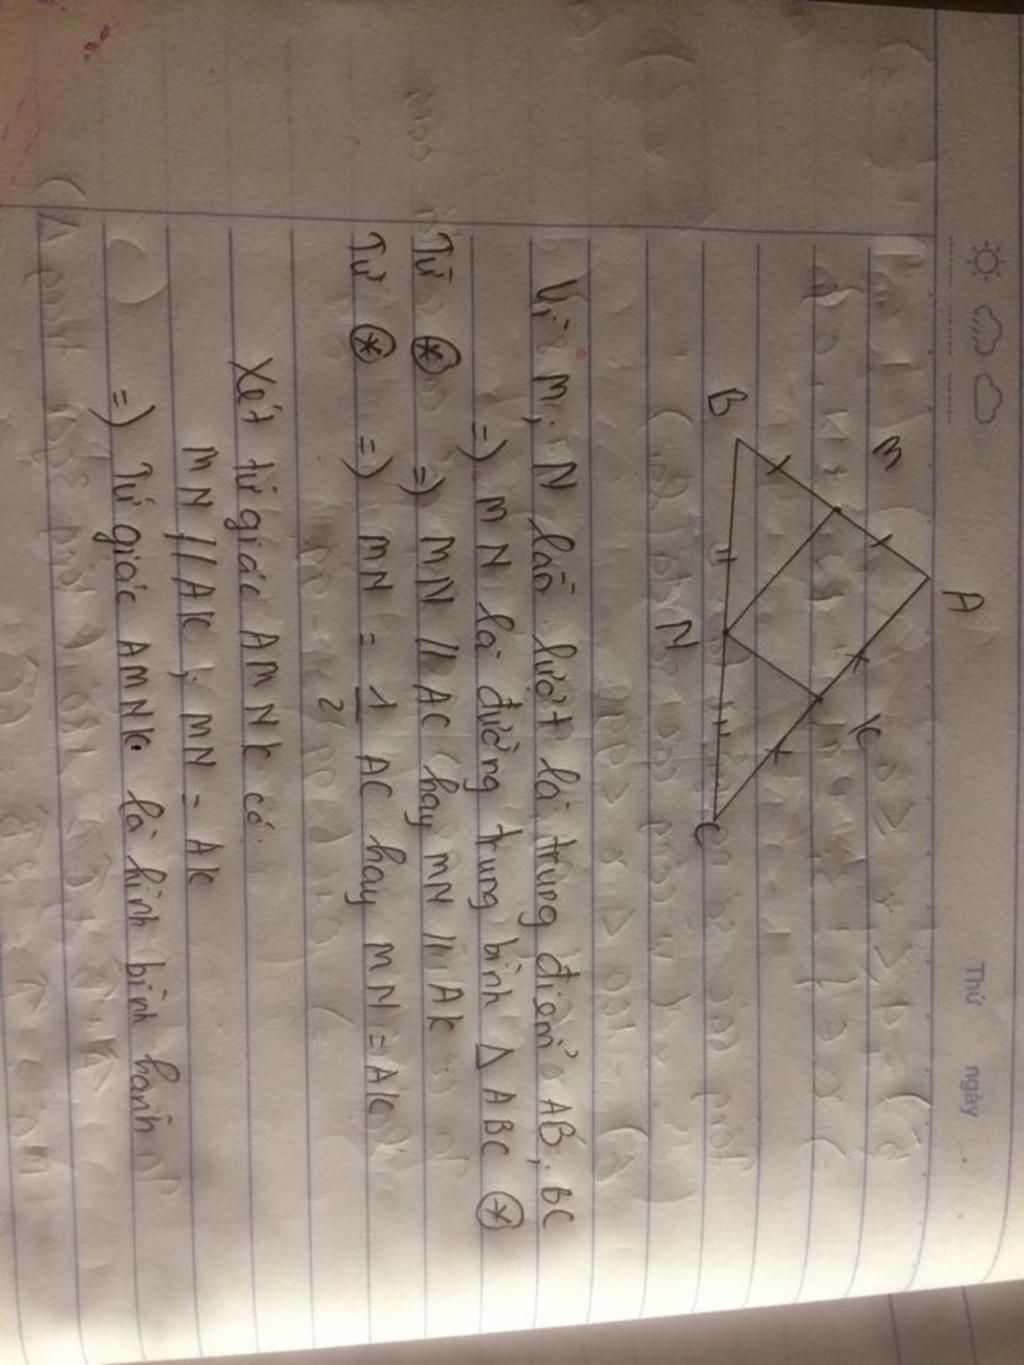 Thứ ngày
A
M
K
B
N
C
Vì M, N lần lượt là trung điểm AB, BC
=) MN là đường trung bình Δ ABC (*)
Từ (*) =) MN // AC hay MN // AK
Từ (*) =) MN = 1/2 AC hay MN = AK
Xét tứ giác AMNK có
MN // AK ; MN = AK
=) Tứ giác AMNK là hình bình hành